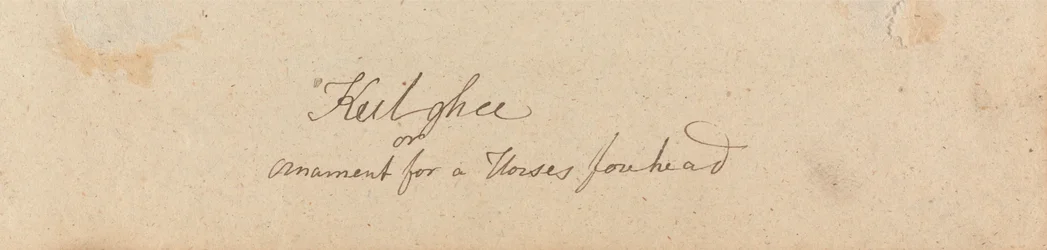 Kulghee
or
ornament for a Horses forehead